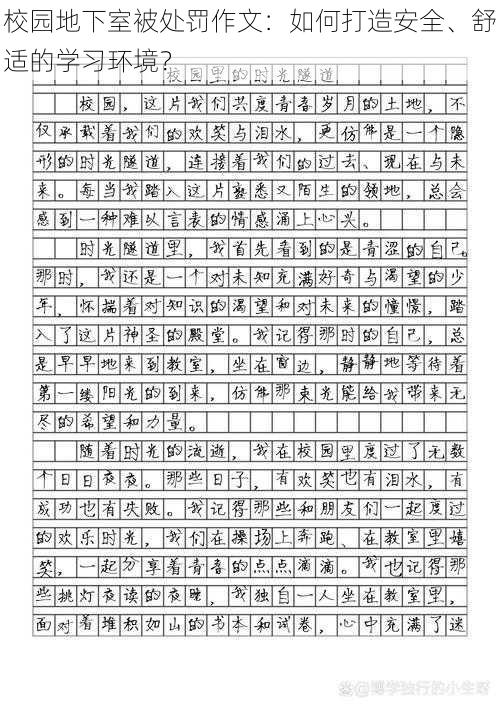 校园地下室被处罚作文：如何打造安全、舒
适的学习环境？
校园里的时光隧道
校园，这片我们共度青春岁月的土地，不
仅承载着我们的欢笑与泪水，更仿佛是一个隐
形的时光隧道，连接着我们的过去、现在与未
来。每当我踏入这片熟悉又陌生的领地，总会
感到一种难以言表的情感涌上心头。
时光隧道里，我首先看到的是青涩的自己。
那时，我还是一个对未知充满好奇与渴望的少
年，怀揣着对知识的渴望和对未来的憧憬，踏
入了这片神圣的殿堂。我记得那时的自己，总
是早早地来到教室，坐在窗边，静静地等待着
第一缕阳光的到来，仿佛那束光能给我带来无
尽的希望和力量。
随着时光的流逝，我在校园里度过了无数
个日日夜夜。那些日子，有欢笑也有泪水，有
成功也有失败。我记得那些和朋友们一起度过
的欢乐时光，我们在操场上奔跑、在教室里嬉
笑，一起分享着青春的点点滴滴。我也记得那
些挑灯夜读的夜晚，我独自一人坐在教室里，
面对着堆积如山的书本和试卷，心中充满了迷
@博学独行的小生呀